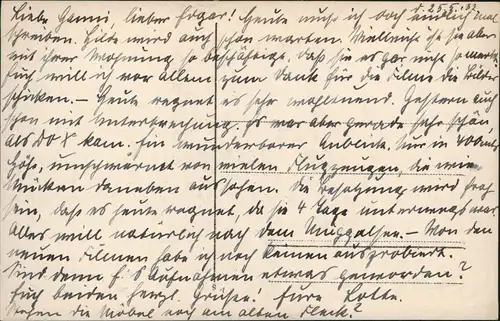 d. 25.5.32.
Liebe Hanni, lieber Edgar! Heute muß ich doch endlich mal
schreiben. Hilde wird auch schon warten. Vielleicht ist sie aber
mit ihrer Wohnung so beschäftigt, daß sie es gar nicht so merkt.
Euch will ich vor allem zum Dank für die Filme die Bilder
schicken. — Heute regnet es sehr wohltuend. Gestern auch
schon mit Unterbrechung. Es war aber gerade sehr schön
als DO X kam. Ein wunderbarer Anblick. Nur in 400 mtr
Höhe, umschwärmt von vielen Flugzeugen, die wie
Mücken daneben aussahen. Die Besatzung wird froh
sein, dass es heute regnet, da sie 4 Tage unterwegs war
Alles will natürlich nach dem Müggelsee. — Von den
neuen Filmen habe ich noch keinen ausprobiert.
Sind denn E's Aufnahmen etwas geworden?
Euch beiden herzl. Grüsse! Eure Lotte.
Stehen die Möbel noch am alten Fleck?